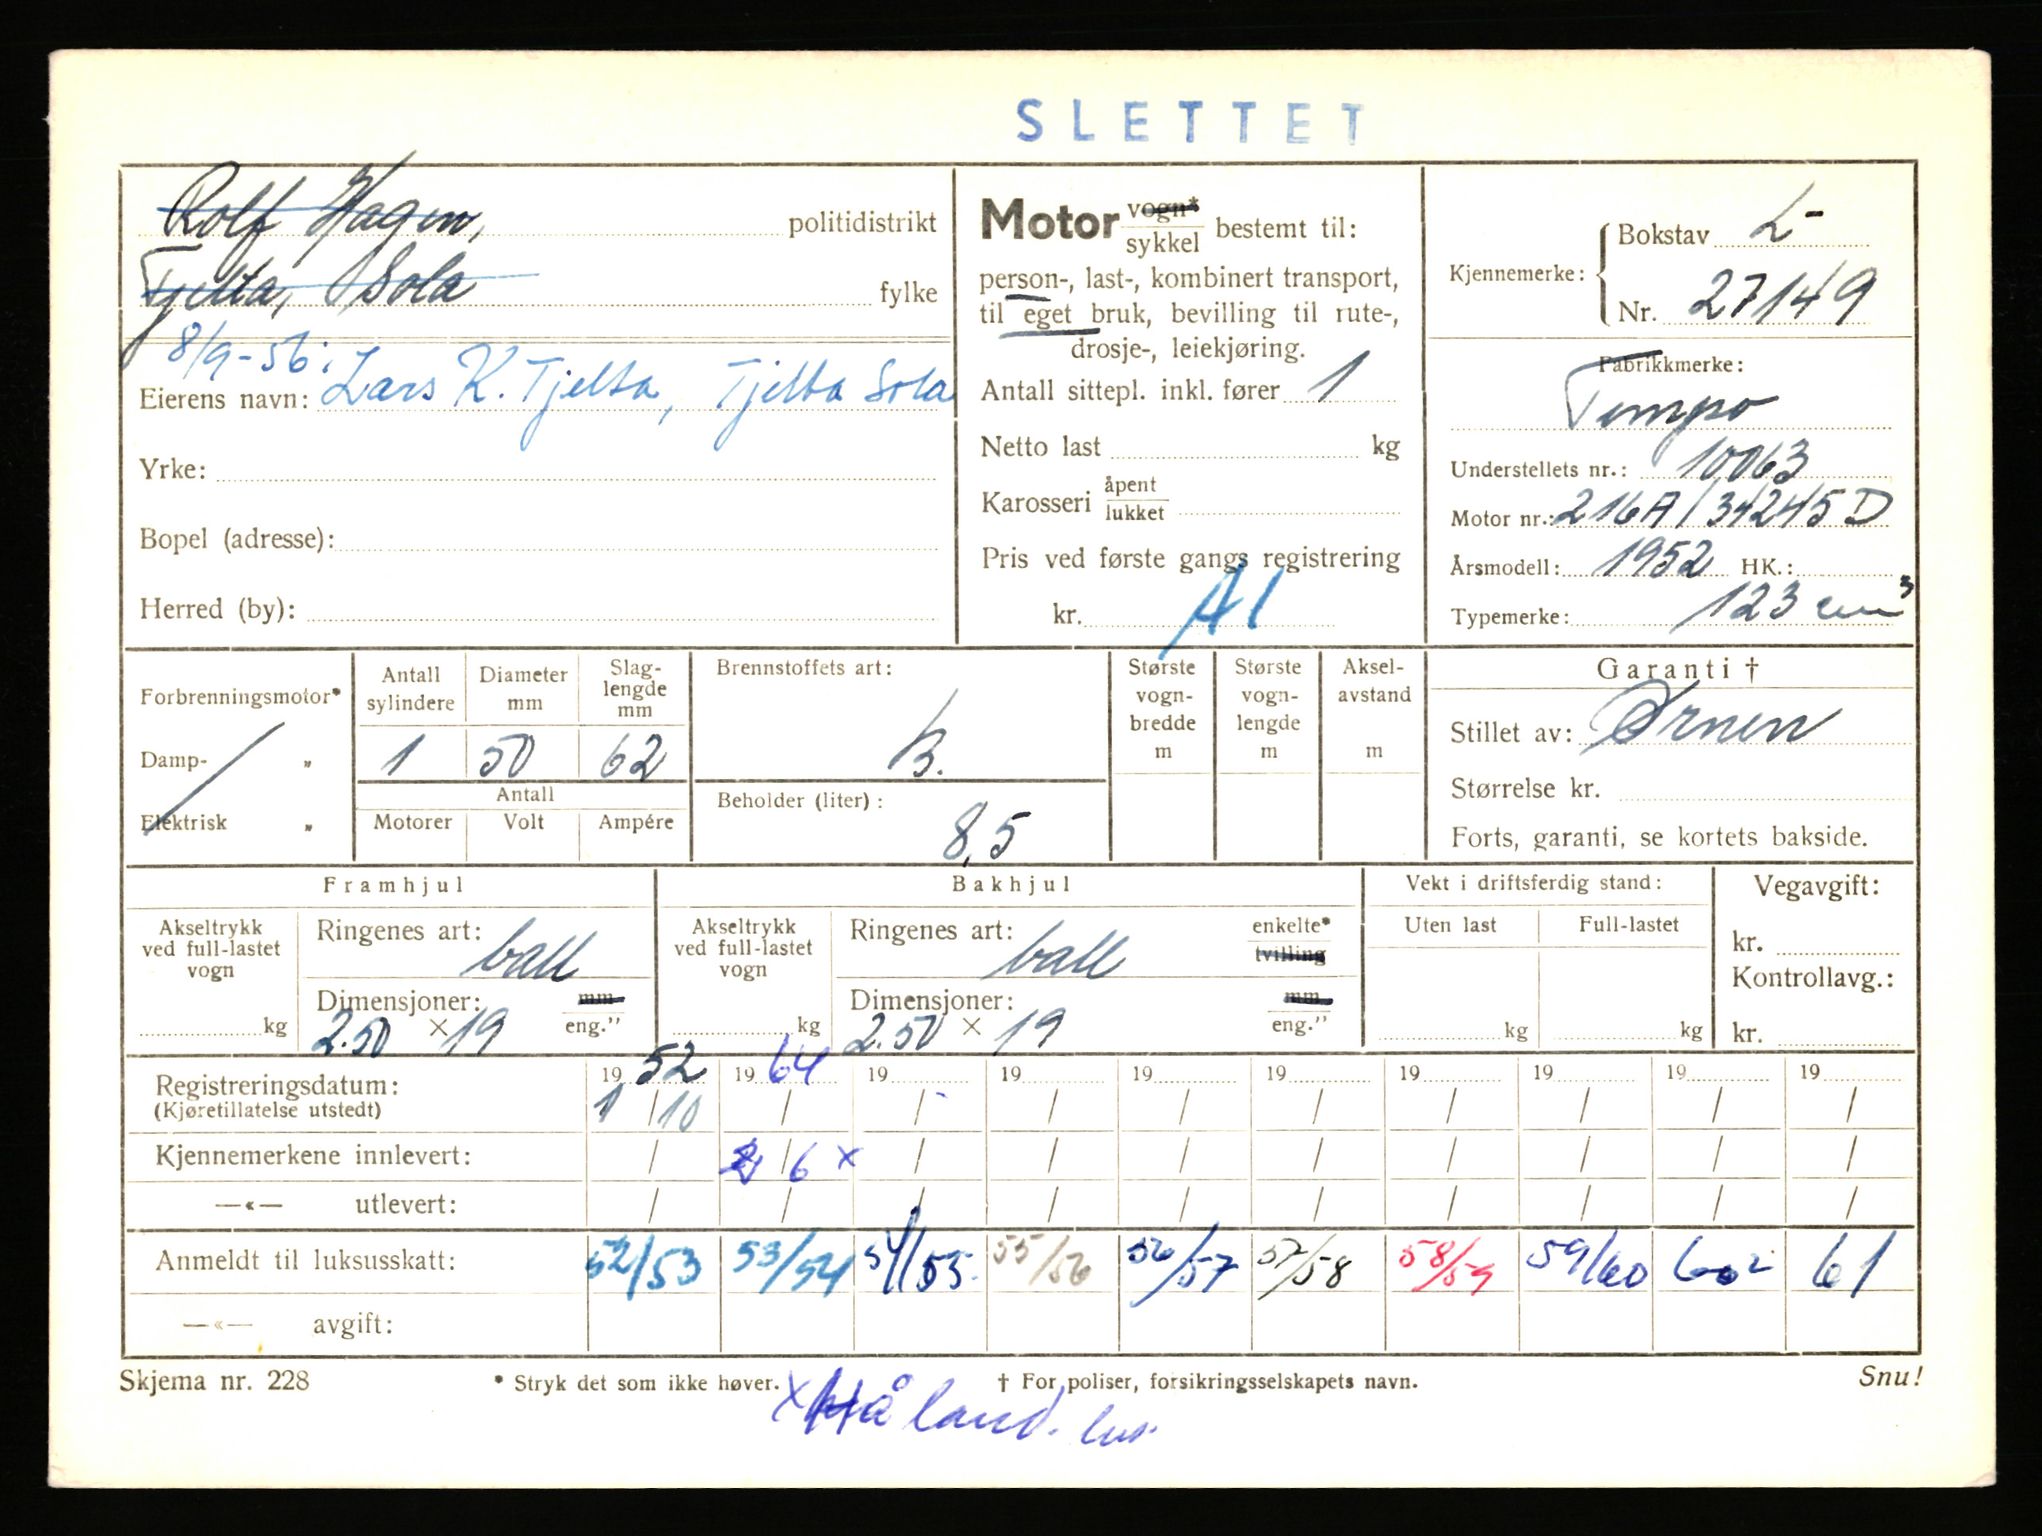 SLETTET
Rolf Hagen, politidistrikt
Tjelta, Sola fylke
8/9-56:
Eierens navn: Lars K. Tjelta, Tjelta Sola
Yrke:
Bopel (adresse):
Herred (by):
Motor vogn* sykkel bestemt til:
person-, last-, kombinert transport,
til eget bruk, bevilling til rute-,
drosje-, leiekjøring.
Antall sittepl. inkl. fører 1
Netto last kg
Karosseri åpent lukket
Pris ved første gangs registrering
kr. A1
Kjennemerke: Bokstav L-
Nr. 27149
Fabrikkmerke:
Tempo
Understellets nr.: 10063
Motor nr.: 216A/34245D
Årsmodell: 1952 HK.:
Typemerke: 123 cm³
Forbrenningsmotor*
Damp- "
Elektrisk "
Antall sylindere
Diameter mm
Slag-lengde mm
1 50 62
Antall
Motorer Volt Ampére
Brennstoffets art:
b.
Beholder (liter):
8,5
Største vogn-bredde m
Største vogn-lengde m
Aksel-avstand m
Garanti †
Stillet av: Ørnen
Størrelse kr.
Forts, garanti, se kortets bakside.
Framhjul
Akseltrykk ved full-lastet vogn
kg
Ringenes art: ball
Dimensjoner: mm
2.50 × 19 eng."
Bakhjul
Akseltrykk ved full-lastet vogn
kg
Ringenes art: ball enkelte* tvilling
Dimensjoner: mm
2.50 × 19 eng."
Vekt i driftsferdig stand:
Uten last Full-lastet
kg kg
Vegavgift:
kr.
Kontrollavg.:
kr.
Registreringsdatum: 19 52 19 64 19 19 19 19 19 19 19 19
(Kjøretillatelse utstedt) 1/10 / / / / / / / / /
Kjennemerkene innlevert: / / 6 x / / / / / / / /
—«— utlevert: / / / / / / / / / /
Anmeldt til luksusskatt: 52/53 53/54 54/55 55/56 56/57 57/58 58/59 59/60 61
—«— avgift:
Skjema nr. 228 * Stryk det som ikke høver. † For poliser, forsikringsselskapets navn. Snu!
x Håland